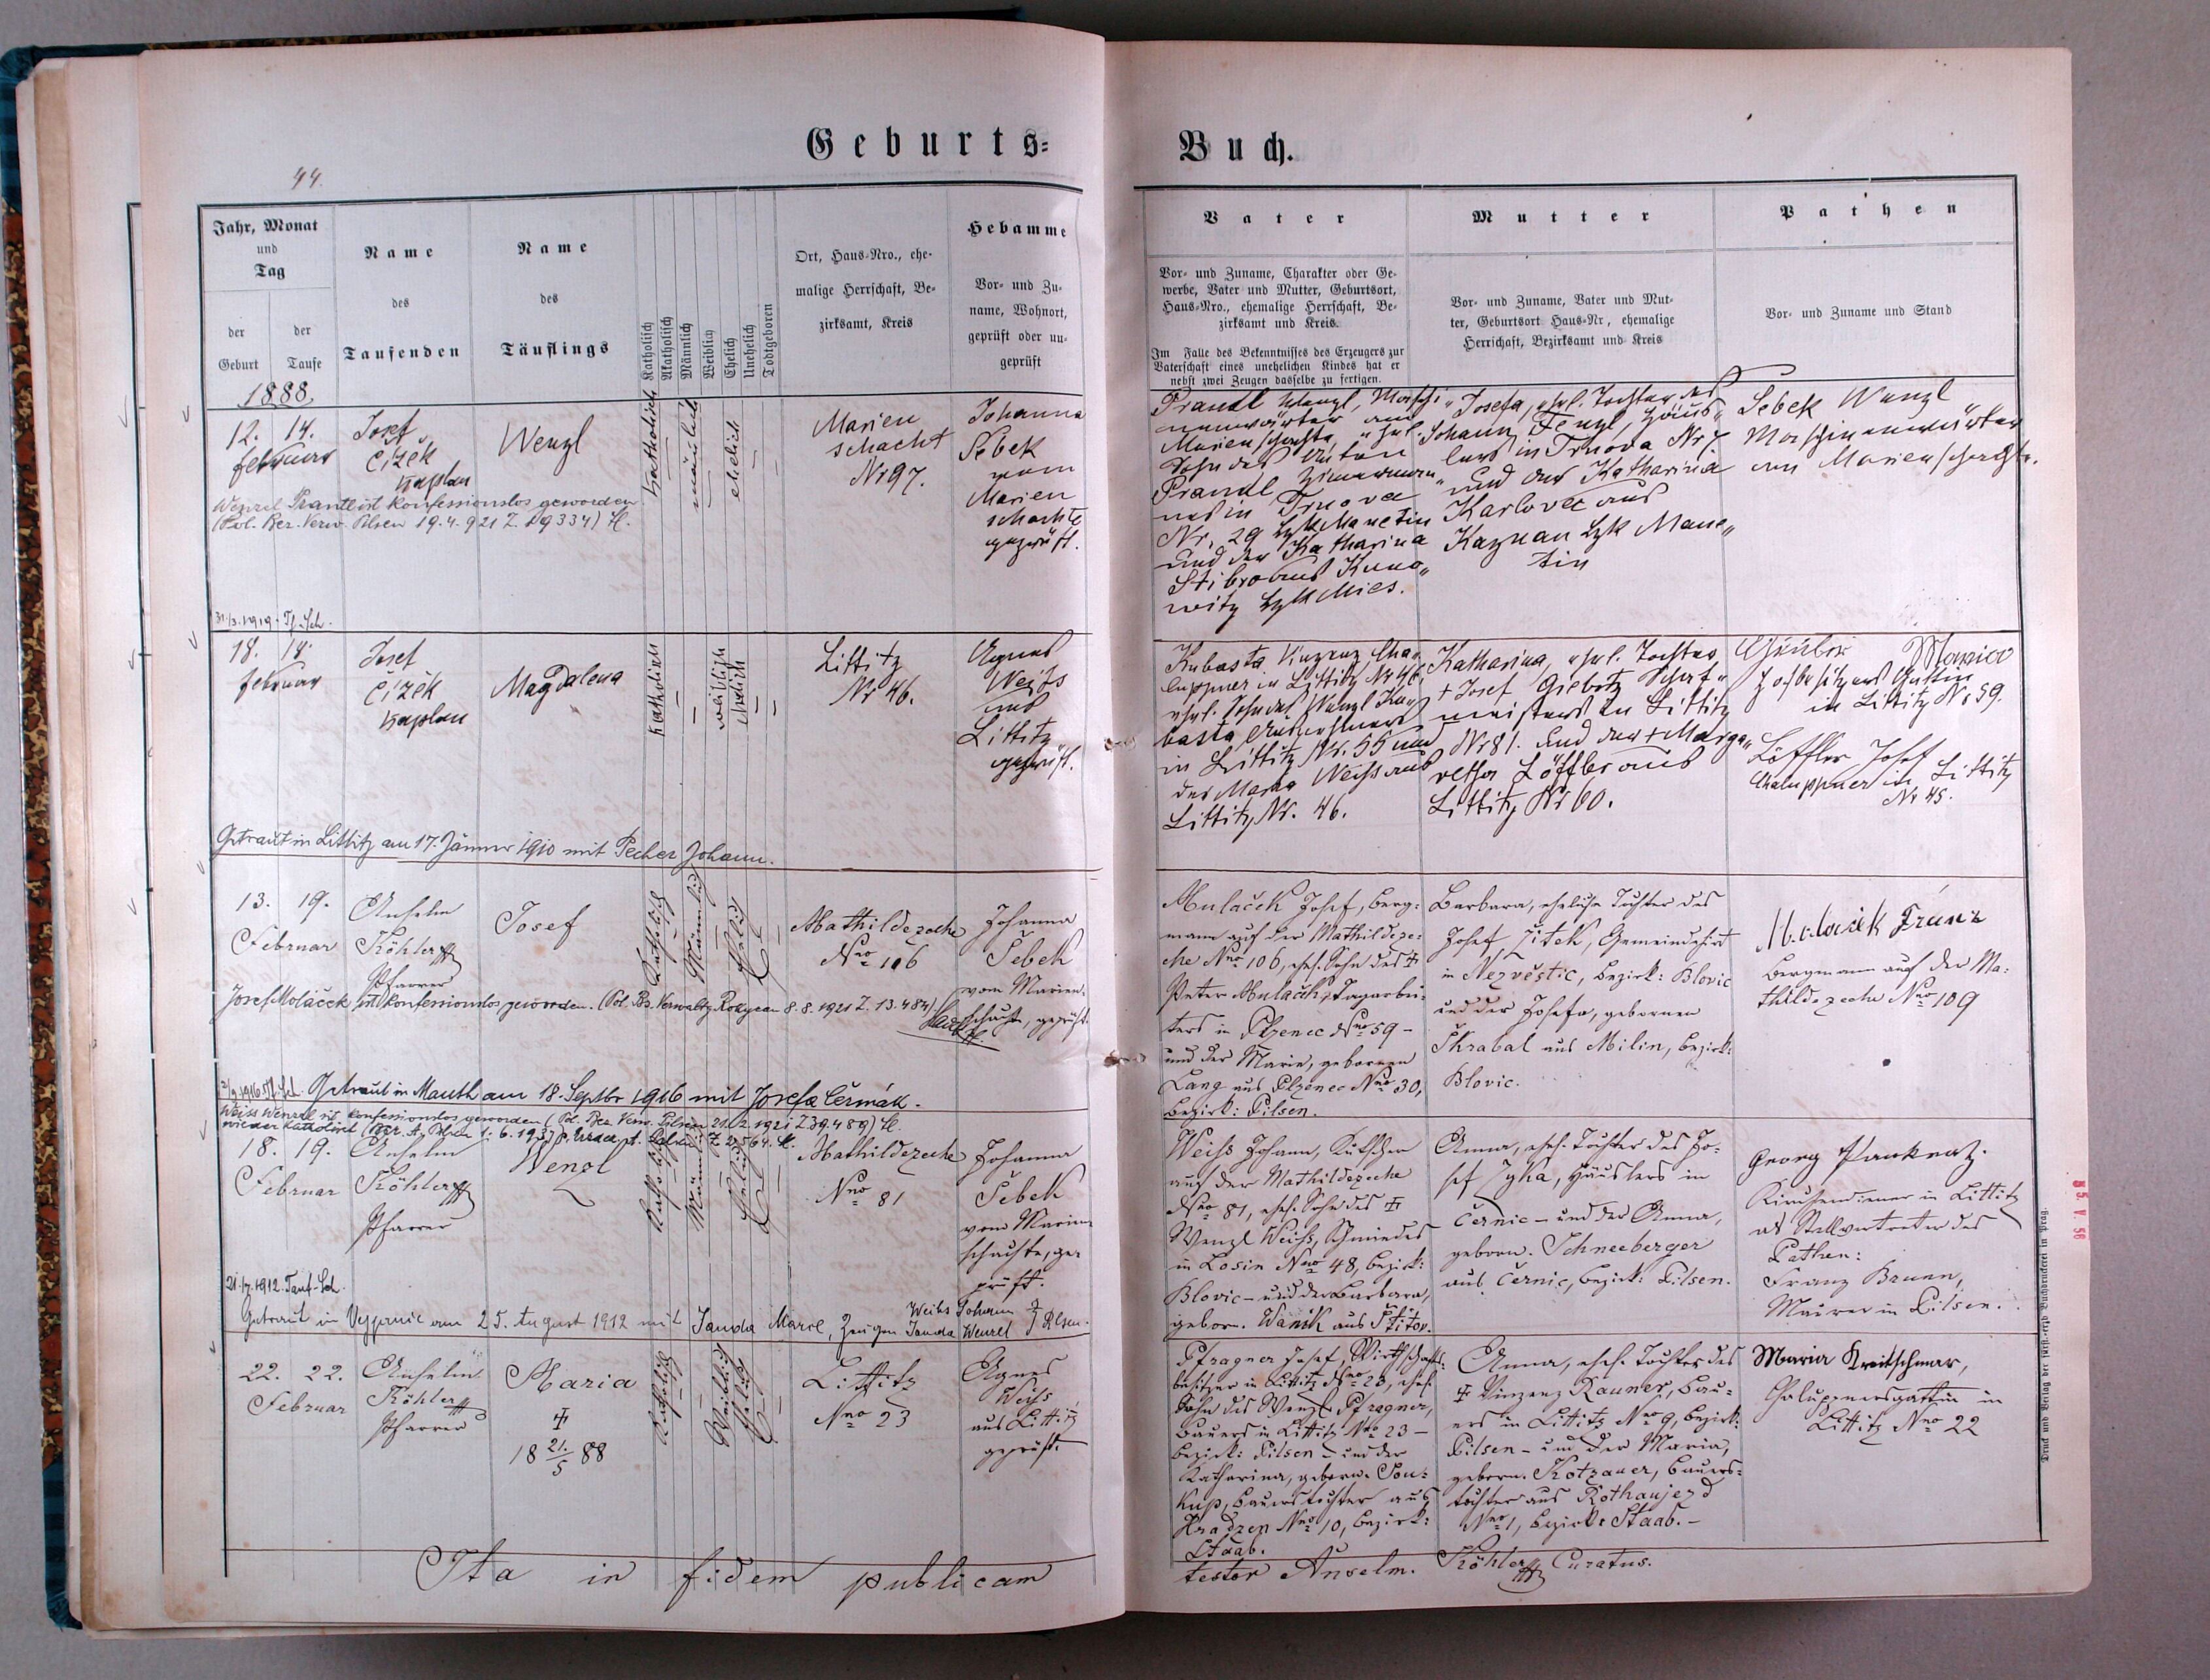 Geburts=
Buch.
44.
Jahr, Monat
und
Tag
der
Geburt
der
Taufe
Name
des
Taufenden
Name
des
Täuflings
Katholisch
Akatholisch
Männlich
Weiblich
Ehelich
Unehelich
Todtgeboren
Ort, Haus-Nro., ehe-
malige Herrschaft, Be-
zirksamt, Kreis
Hebamme
Vor- und Zu-
name, Wohnort,
geprüft oder un-
geprüft
Vater
Vor- und Zuname, Charakter oder Ge-
werbe, Vater und Mutter, Geburtsort,
Haus-Nro., ehemalige Herrschaft, Be-
zirksamt und Kreis.
Im Falle des Bekenntnisses des Erzeugers zur
Vaterschaft eines unehelichen Kindes hat er
nebst zwei Zeugen dasselbe zu fertigen.
Mutter
Vor- und Zuname, Vater und Mut-
ter, Geburtsort Haus-Nr, ehemalige
Herrschaft, Bezirksamt und Kreis
Pathen
Vor- und Zuname und Stand
1888.
12. 14.
Februar
Josef
Čížek
Kaplan
Wenzl
katholisch
männlich
ehelich
Marien
schacht
Nr 97.
Johanna
Šebek
vom
Marien
schachte
geprüft.
Prandl Wenzl, Maschi„
nenwärter am
Marienschachte, ehel.
Sohn des Anton
Prandl Zimerman„
nes in Trnova
Nr. 29 Bzk Manetin
und der Katharina
Stibro aus Kuno„
witz Bzk Mies.
Josefa, ehel. Tochter des
Johann Fenzl, Häus„
lers in Trnova Nr 7
und der Katharina
Karlovec aus
Kaznau Bzk Mane„
tin
Šebek Wenzl
Maschinenwärter
am Marienschachte.
Wenzel Prantl ist konfessionslos geworden
(Pol. Bez. Verw. Pilsen 19.4.921 Z.
31/3. 1919. Tf. Sch.
18. 18.
Februar
Josef
Čížek
Kaplan
Magdalena
katholisch
weiblich
ehelich
Littitz
Nr 46.
Agnes
Weiss
aus
Littitz
geprüft.
Kubasta Vinzenz Cha„
luppner in Littitz Nr 46,
ehel. Sohn des Wenzl Ku„
basta,
in Littitz Nr. 55 und
der Maria Weiss aus
Littitz Nr. 46.
Katharina, ehel. Tochter
+ Josef Giebotz Schaf„
meisters in Littitz
Nr 81. und der + Marga„
retha Löffler aus
Littitz Nr 60.
Maria
Hofbesitzers Gattin
in Littitz Nr 59.
Löffler Josef
Chaluppner in Littitz
Nr 45.
Getraut in Littitz am 17. Jänner 1910 mit Pecher Johann.
13. 19.
Februar
Anselm
Köhler
Pfarrer
Josef
Katholisch
Männlich
Ehelich
Mathildezeche
Nro 106
Johanna
Šebek
vom Marien-
schachte, geprüft.
Mulaček Josef, Berg=
mann auf der Mathildeze=
che Nro 106, ehel. Sohn des ‡
Peter Mulaček, Tagarbei=
ters in Plzenec Nro 59 –
und der Maria, gebornen
Lang aus Plzenec Nro 30,
Bezirk: Pilsen.
Barbara, eheliche Tochter des
Josef Žitek, Gemeindehirt
in Nezvěstic, Bezirk: Blovic
und der Josefa, gebornen
Škrabal aus Milin, Bezirk:
Blovic.
Molaček Franz
Bergmann auf der Ma=
thildezeche Nro 109
Josef Moláček ist konfessionslos geworden. (Pol. Bz. Verwaltg. Rokycan 8.8.1921 Z. 13.484).
Getraut in Mauth am 18. Septbr 1916 mit Josefa Čermák.
Weiss Wenzel ist konfessionslos geworden (Pol. Bez. Verw. Pilsen 21.2.1921 Z 39.489)
wieder katholisch
18. 19.
Februar
Anselm
Köhler
Pfarrer
Wenzl
Katholisch
Männlich
Ehelich
Mathildezeche
Nro 81
Johanna
Šebek
vom Marien-
schachte, ge=
prüft.
Weiss Johann, Kutscher
auf der Mathildezeche
Nro 81, ehel. Sohn des ‡
Wenzl Weiss, Schmiedes
in Losin Nro 48, Bezirk:
Blovic – und der Barbara,
geborn. Waněk aus Štitov.
Anna, ehel. Tochter des Jo=
sef Zyka, Häuslers in
Černic – und der Anna,
geborn. Schneeberger
aus Černic, Bezirk: Pilsen.
Georg Pankratz.
Kirchendiener in Littitz
als Stellvertreter des
Pathen:
Franz Brunn,
Maurer in Pilsen.
21./7. 1912. Tauf-Sch.
Getraut in Vejprnic am 25. August 1912 mit Janda Marie, Zeugen Weiss Johann Janda Wenzel Pilsen.
22. 22.
Februar
Anselm
Köhler
Pfarrer
Maria
‡
18 21./5 88
Katholisch
Weiblich
Ehelich
Littitz
Nro 23
Agnes
Weiss
aus Littitz
geprüft.
Pfragner Josef, Wirthschafts=
besitzer in Littitz Nro 23, ehel.
Sohn des Wenzl Pfragner,
Bauers in Littitz Nro 23 –
Bezirk: Pilsen – und der
Katharina, geborn. Sou=
kup, Bauerstochter aus
Hradzen Nro 10, Bezirk:
Staab.
Anna, ehel. Tochter des
‡ Vinzenz Rauner, Bau=
ers in Littitz Nro 9, Bezirk:
Pilsen – und der Maria,
geborn. Kotzauer, Bauers=
tochter aus Rothaujezd
Nro 1, Bezirk: Staab. –
Maria Kreitschmar,
Chaluppnersgattin in
Littitz Nro 22
Ita in fidem publicam
testor Anselm. Köhler Curatus.
Druck und Verlag der fürst.-erzb Buchdruckerei in Prag.